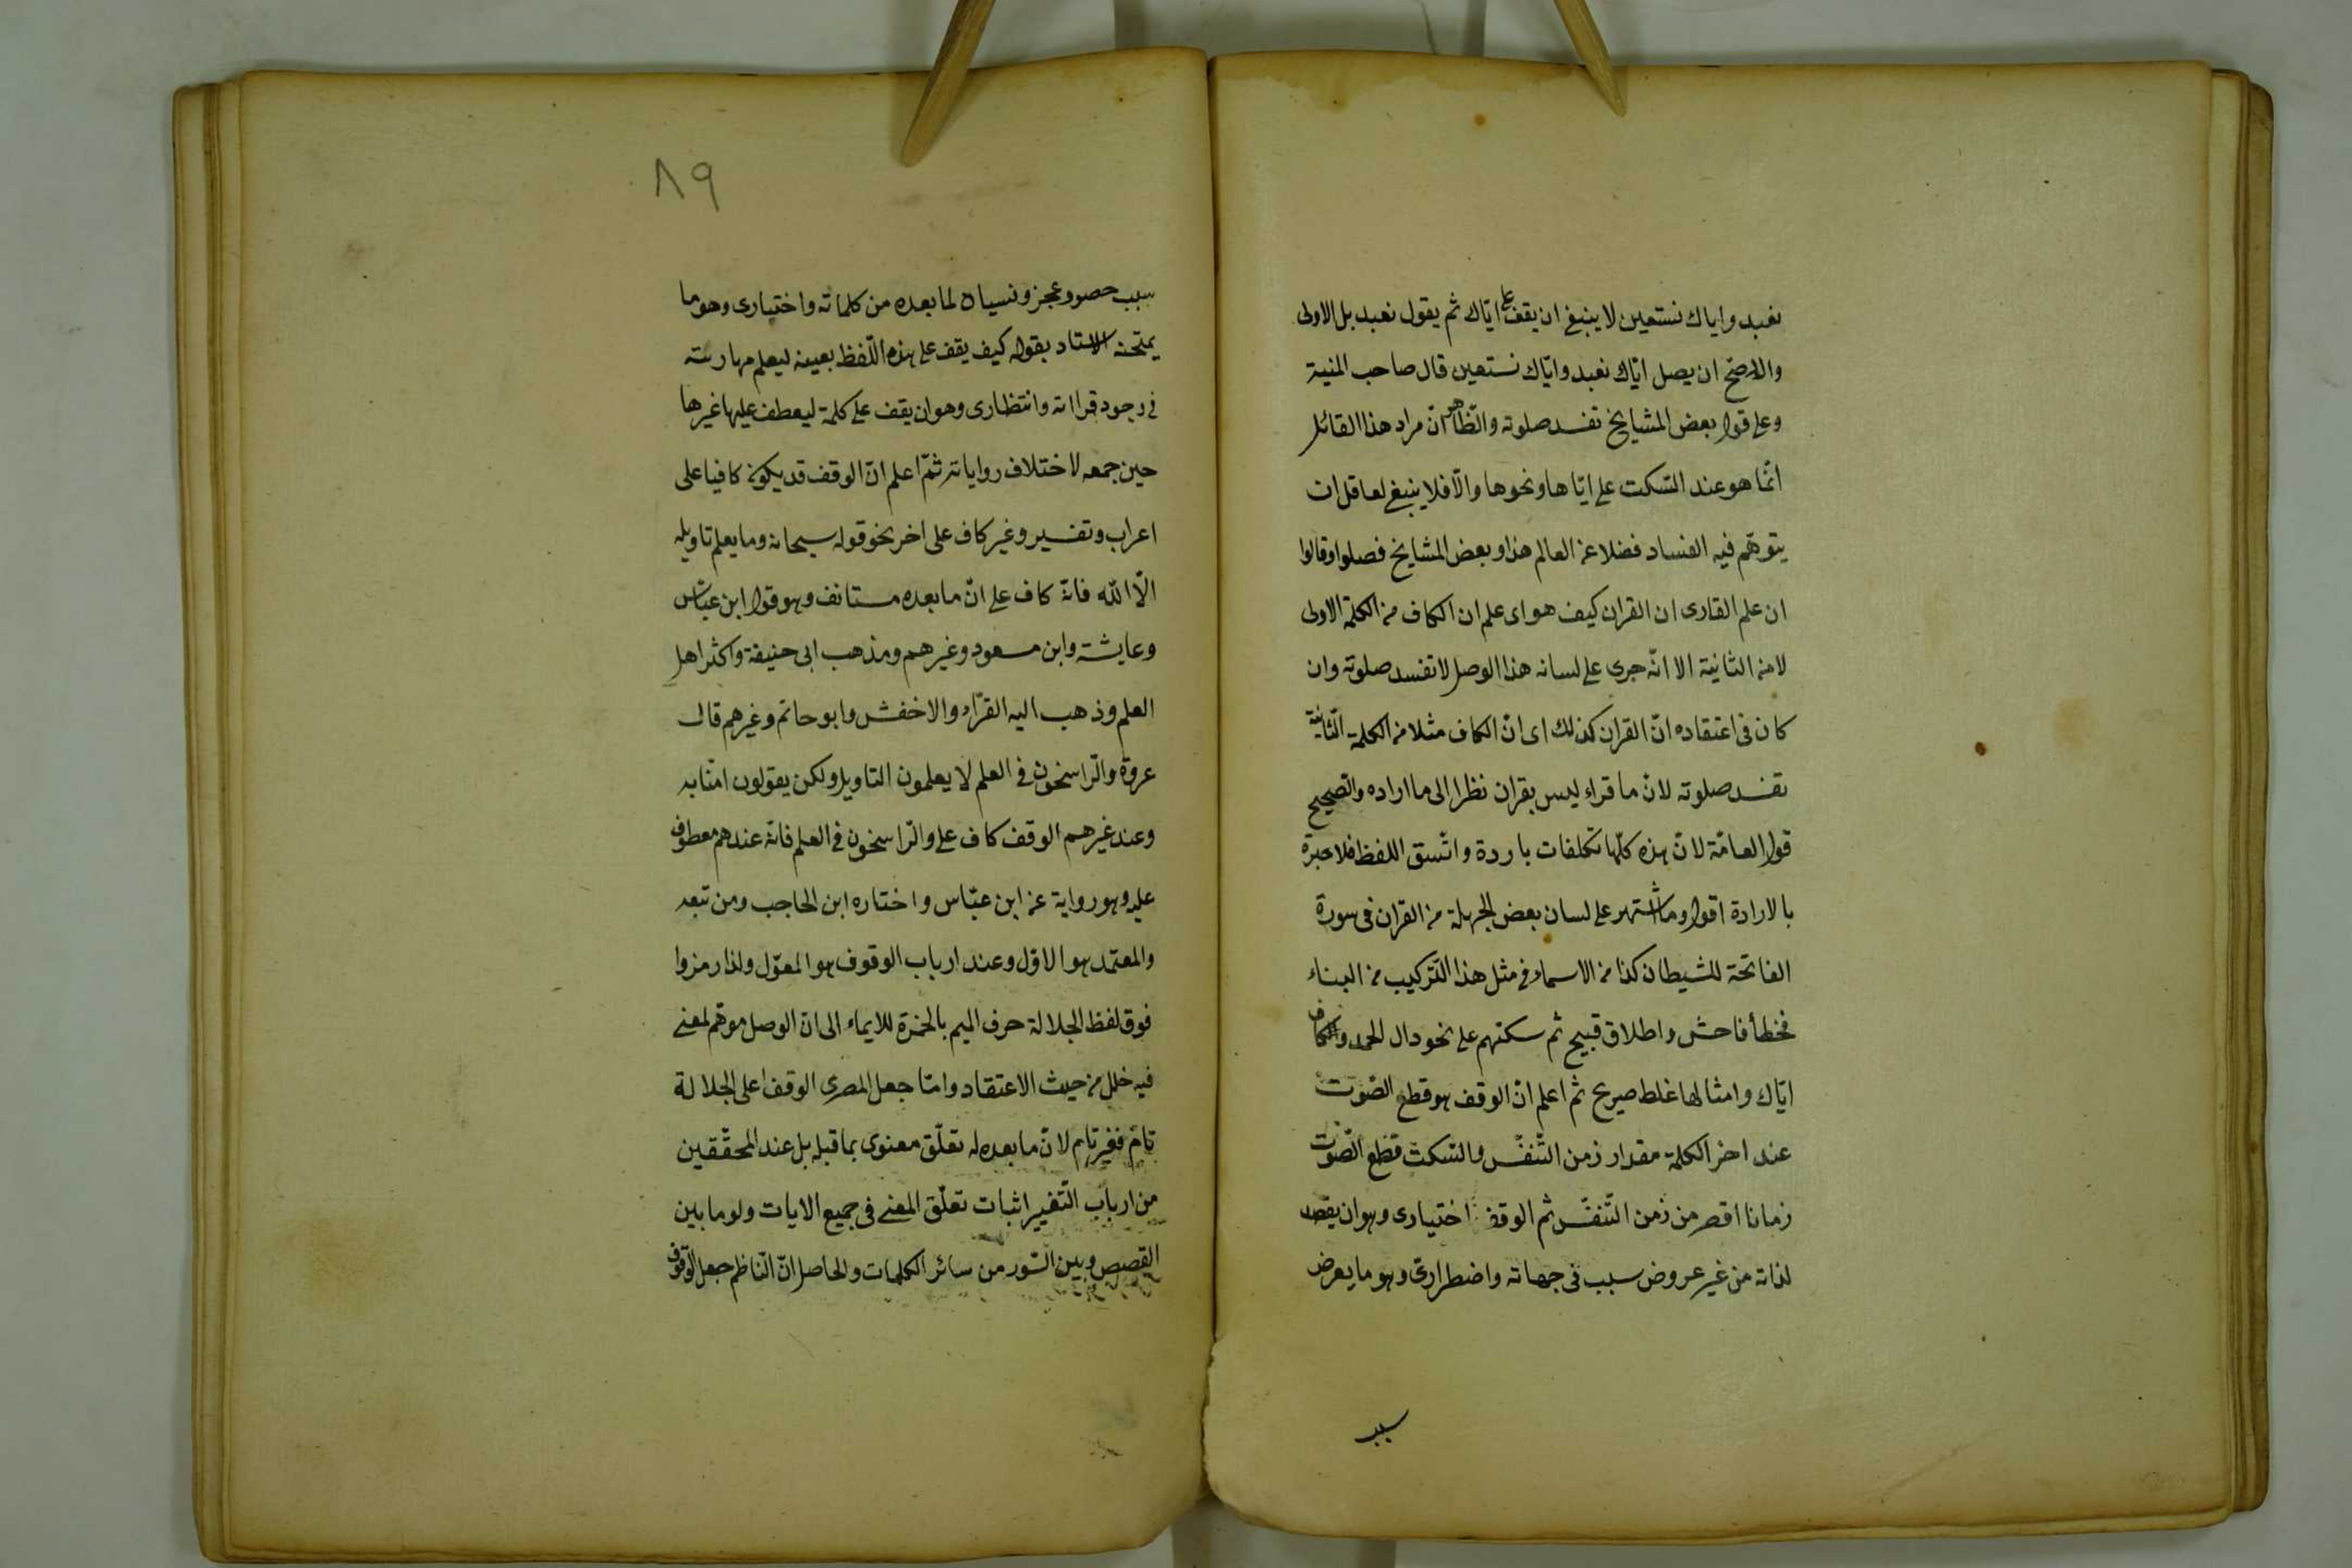 نعبد واياك نستعين لا ينبغي ان يقف على ايّاك ثم يقول نعبد بل الاولى
والاصحّ ان يصل ايّاك نعبد وايّاك نستعين قال صاحب المنية
وعلى قول بعض المشايخ تفسد صلوته والظّاهر انّ مراد هذا القائل
انّما هو عند السّكت على ايّاها ونحوها والّا فلا ينبغي لعاقل ان
يتوهّم فيه الفساد فضلا عن العالم هذا وبعض المشايخ فصلوا وقالوا
ان علم القارى ان القران كيف هو اى علم ان الكاف من الكلمة الاولى
لا من الثانية الا انّه جرى على لسانه هذا الوصل لا تفسد صلوته وان
كان فى اعتقاده انّ القران كذلك اى انّ الكاف مثلا من الكلمة الثّانية
تفسد صلوته لانّ ما قراء ليس بقران نظرا الى ما اراده والصّحيح
قول العامّة لانّ هذه كلّها تكلفات باردة واتّسق اللفظ فلا عبرة
بالارادة اقول وما اشتهر على لسان بعض الجهلة من القران فى سورة
الفاتحة للشيطان كذا من الاسماء فى مثل هذا التّركيب من البناء
فخطأ فاحش واطلاق قبيح ثم سكتهم على نحو دال الحمد وكاف
ايّاك وامثالها غلط صريح ثم اعلم انّ الوقف هو قطع الصّوت
عند اخر الكلمة مقدار زمن التّنفّس والسّكت قطع الصّوت
زمانا اقصر من زمن التّنفّس ثم الوقف اختيارى وهو ان يقصد
لذاته من غير عروض سبب فى جهاته واضطرارىّ وهو ما يعرض
سبب
٨٩
سبب حصر وعجز ونسيان لما بعده من كلماته واختيارى وهو ما
يمتحنه الاستاد بقوله كيف يقف على هذه اللّفظ بعينه ليعلم مهارته
فى وجود قراءته وانتظارى وهو ان يقف على كلمة ليعطف عليها غيرها
حين جمعه لاختلاف رواياته ثمّ اعلم انّ الوقف قد يكون كافيا على
اعراب وتفسير وغير كاف على اخر نحو قوله سبحانه وما يعلم تاويله
الّا الله فانّه كاف على انّ ما بعده مستانف وهو قول ابن عبّاس
وعايشة وابن مسعود وغيرهم ومذهب ابى حنيفة واكثر اهل
العلم وذهب اليه القرّاء والاخفش وابو حاتم وغيرهم قال
عروة والرّاسخون فى العلم لا يعلمون التاويل ولكن يقولون امنّا به
وعند غيرهم الوقف كاف على والرّاسخون فى العلم فانّه عندهم معطوف
عليه وهو رواية عن ابن عبّاس واختاره ابن الحاجب ومن تبعه
والمعتمد هو الاوّل وعند ارباب الوقوف هو المعوّل ولذا رمزوا
فوق لفظ الجلالة حرف الميم بالحمرة للايماء الى انّ الوصل موهّم لمعنى
فيه خلل من حيث الاعتقاد وامّا جعل المصرى الوقف على الجلالة
تامّ فغير تام لانّ ما بعده له تعلّق معنوى بما قبله بل عند المحقّقين
من ارباب التّفسير اثبات تعلّق المعنى فى جميع الايات ولو ما بين
القصص وبين السّور من سائر الكلمات والحاصل انّ النّاظم جعل الوقوف